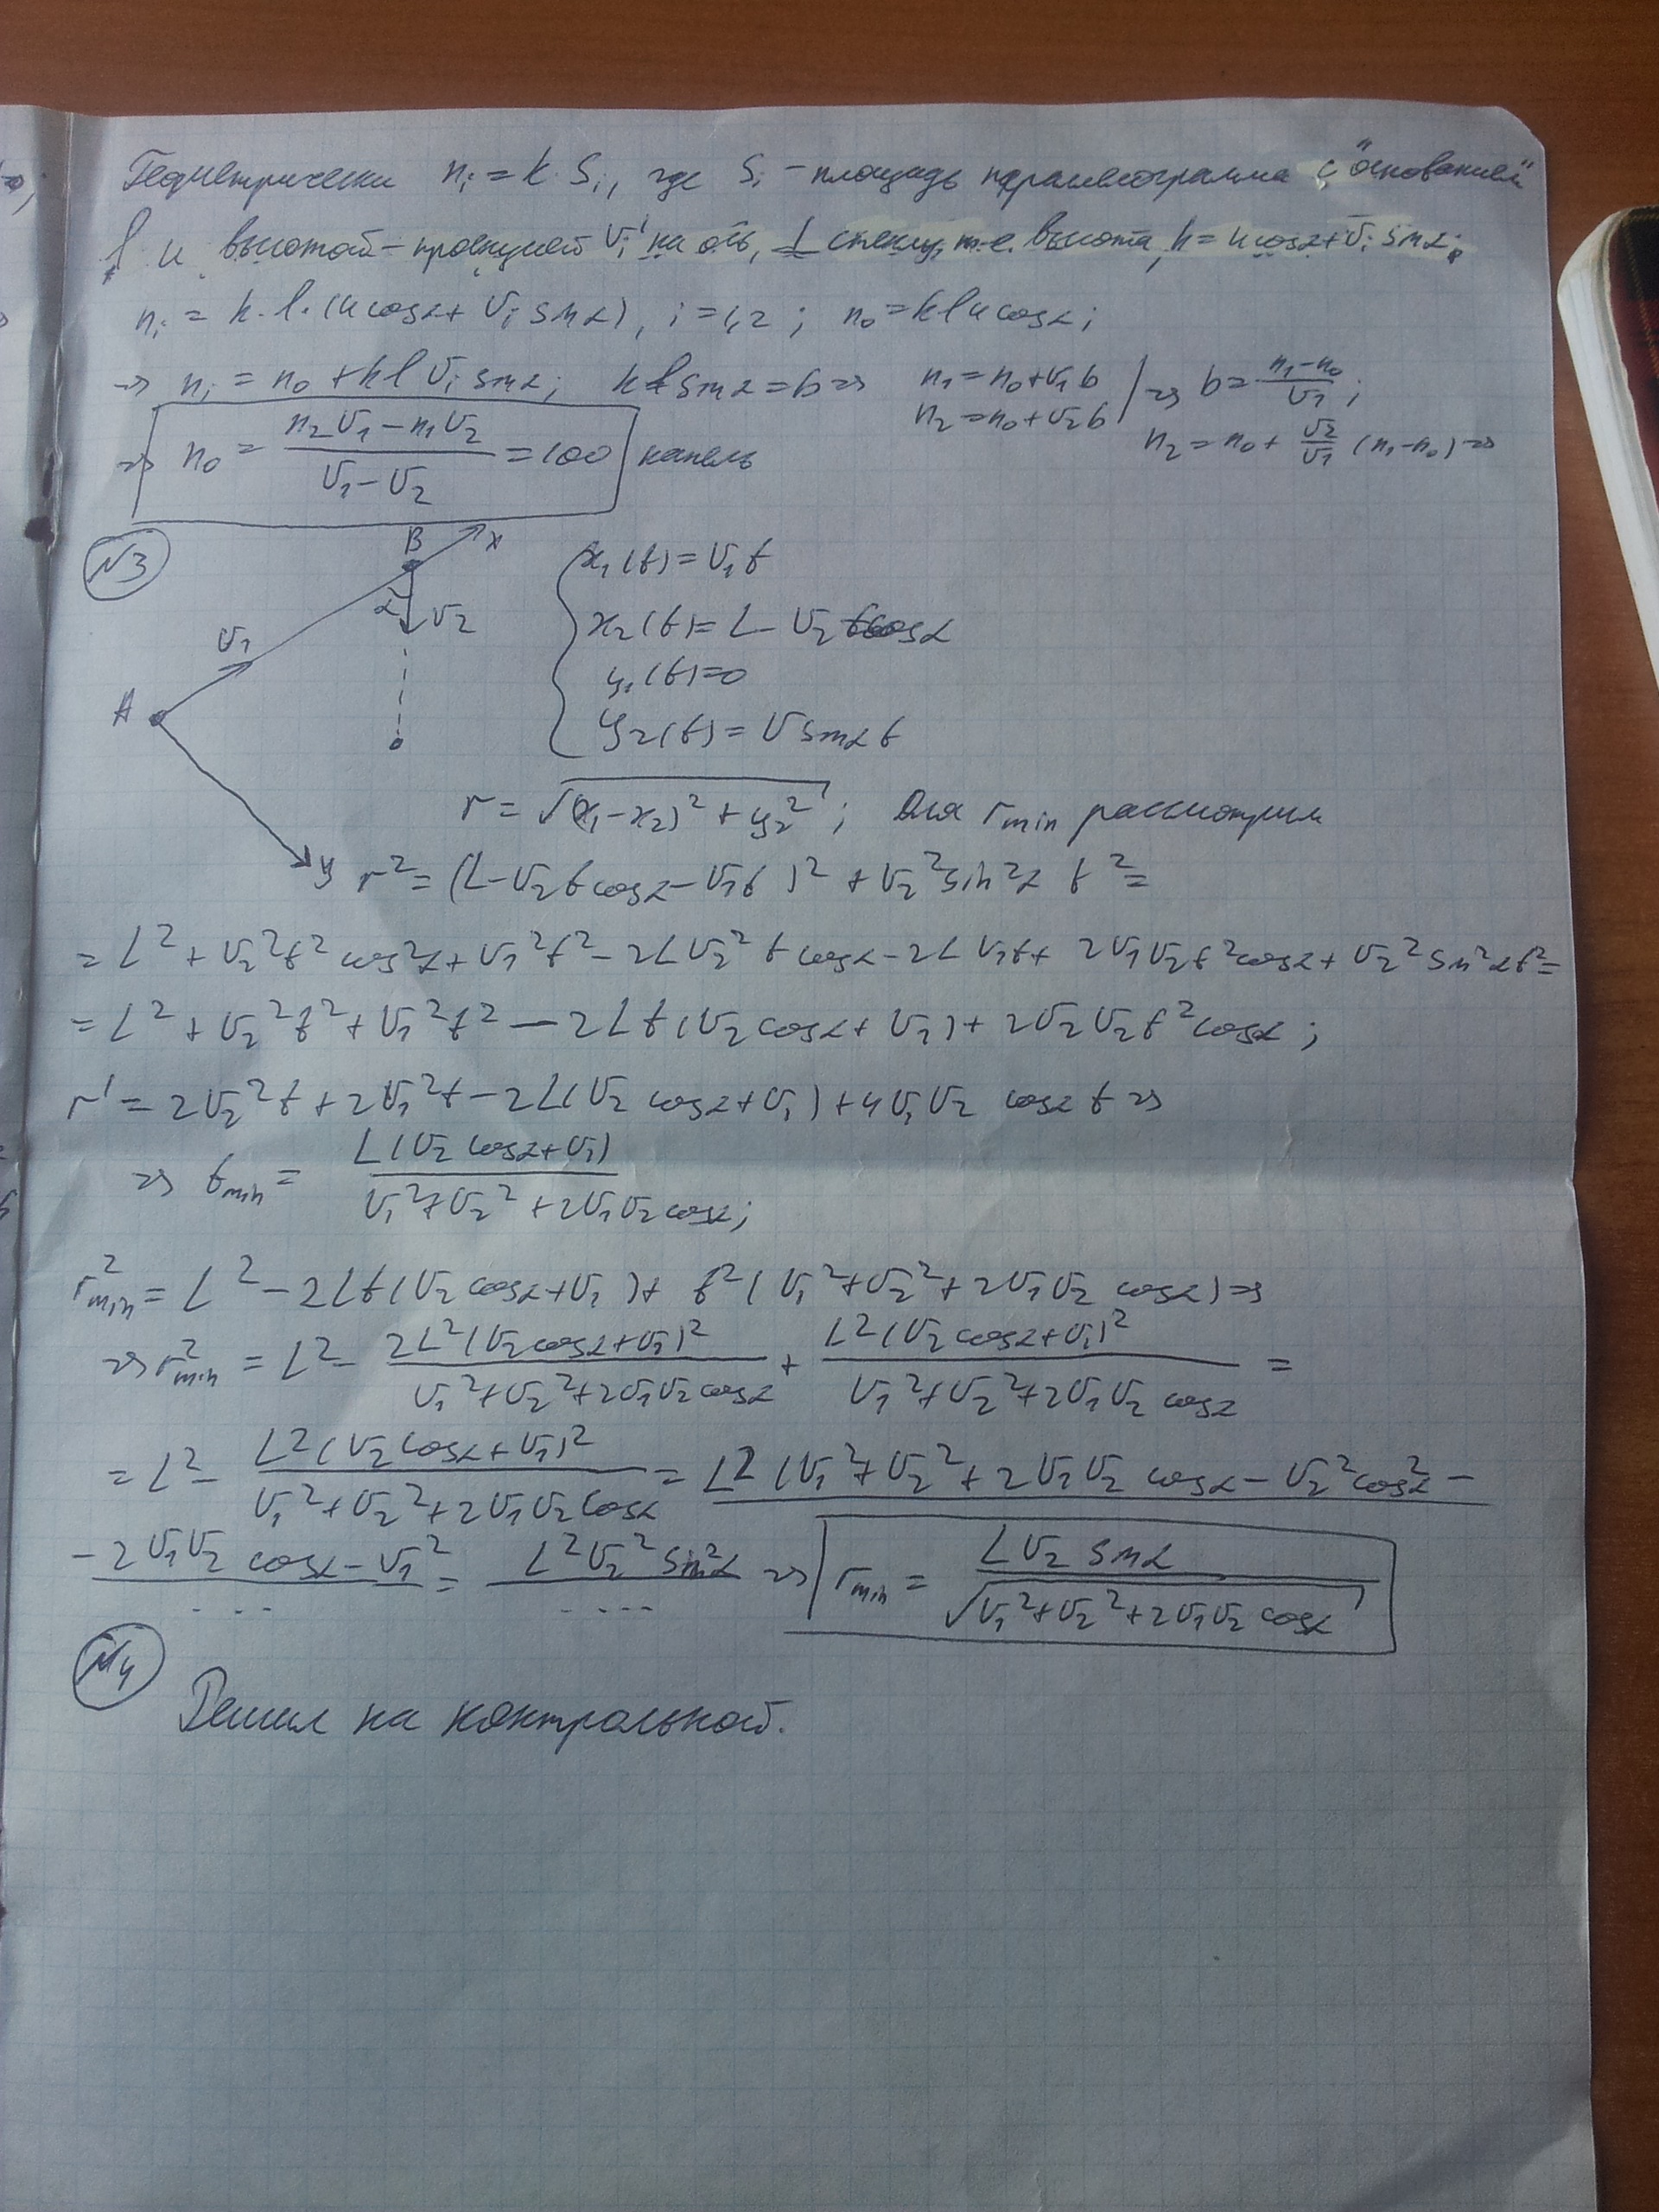 Геометрически nᵢ = k·Sᵢ, где Sᵢ – площадь параллелограмма с "основанием"
l и высотой – проекцией vᵢ' на ось, ⊥ стеклу, т.е. высота h = u cosα + vᵢ sinα;
nᵢ = k·l·(u cosα + vᵢ sinα), i = 1,2; n₀ = klu cosα;
=> nᵢ = n₀ + kl vᵢ sinα; kl sinα = b => n₁ = n₀ + v₁b | => b = (n₁ – n₀)/v₁;
n₂ = n₀ + v₂b
n₂ = n₀ + v₂/v₁ (n₁ – n₀) =>
=> n₀ = (n₂v₁ – n₁v₂)/(v₁ – v₂) = 100 капель
N3
B x
α v₂
v₁
A
y
x₁(t) = v₁t
x₂(t) = L – v₂t cosα
y₁(t) = 0
y₂(t) = v sinα t
r = √((x₁ – x₂)² + y₂²); Для rmin рассмотрим
r² = (L – v₂t cosα – v₁t)² + v₂² sin²α t² =
= L² + v₂²t² cos²α + v₁²t² – 2Lv₂² t cosα – 2Lv₁t + 2v₁v₂t² cosα + v₂² sin²αt² =
= L² + v₂²t² + v₁²t² – 2Lt(v₂ cosα + v₁) + 2v₂v₂t² cosα;
r' = 2v₂²t + 2v₁²t – 2L(v₂ cosα + v₁) + 4v₁v₂ cosα t =>
=> tmin = L(v₂ cosα + v₁)/(v₁² + v₂² + 2v₁v₂ cosα);
r²min = L² – 2Lt(v₂ cosα + v₁) + t²(v₁² + v₂² + 2v₁v₂ cosα) =>
=> r²min = L² – 2L²(v₂ cosα + v₁)²/(v₁² + v₂² + 2v₁v₂ cosα) + L²(v₂ cosα + v₁)²/(v₁² + v₂² + 2v₁v₂ cosα) =
= L² – L²(v₂ cosα + v₁)²/(v₁² + v₂² + 2v₁v₂ cosα) = L²(v₁² + v₂² + 2v₁v₂ cosα – v₂² cos²α –
– 2v₁v₂ cosα – v₁²/... = L²v₂² sin²α/.... => rmin = Lv₂ sinα/√(v₁² + v₂² + 2v₁v₂ cosα)
N4
Решил на контрольной.